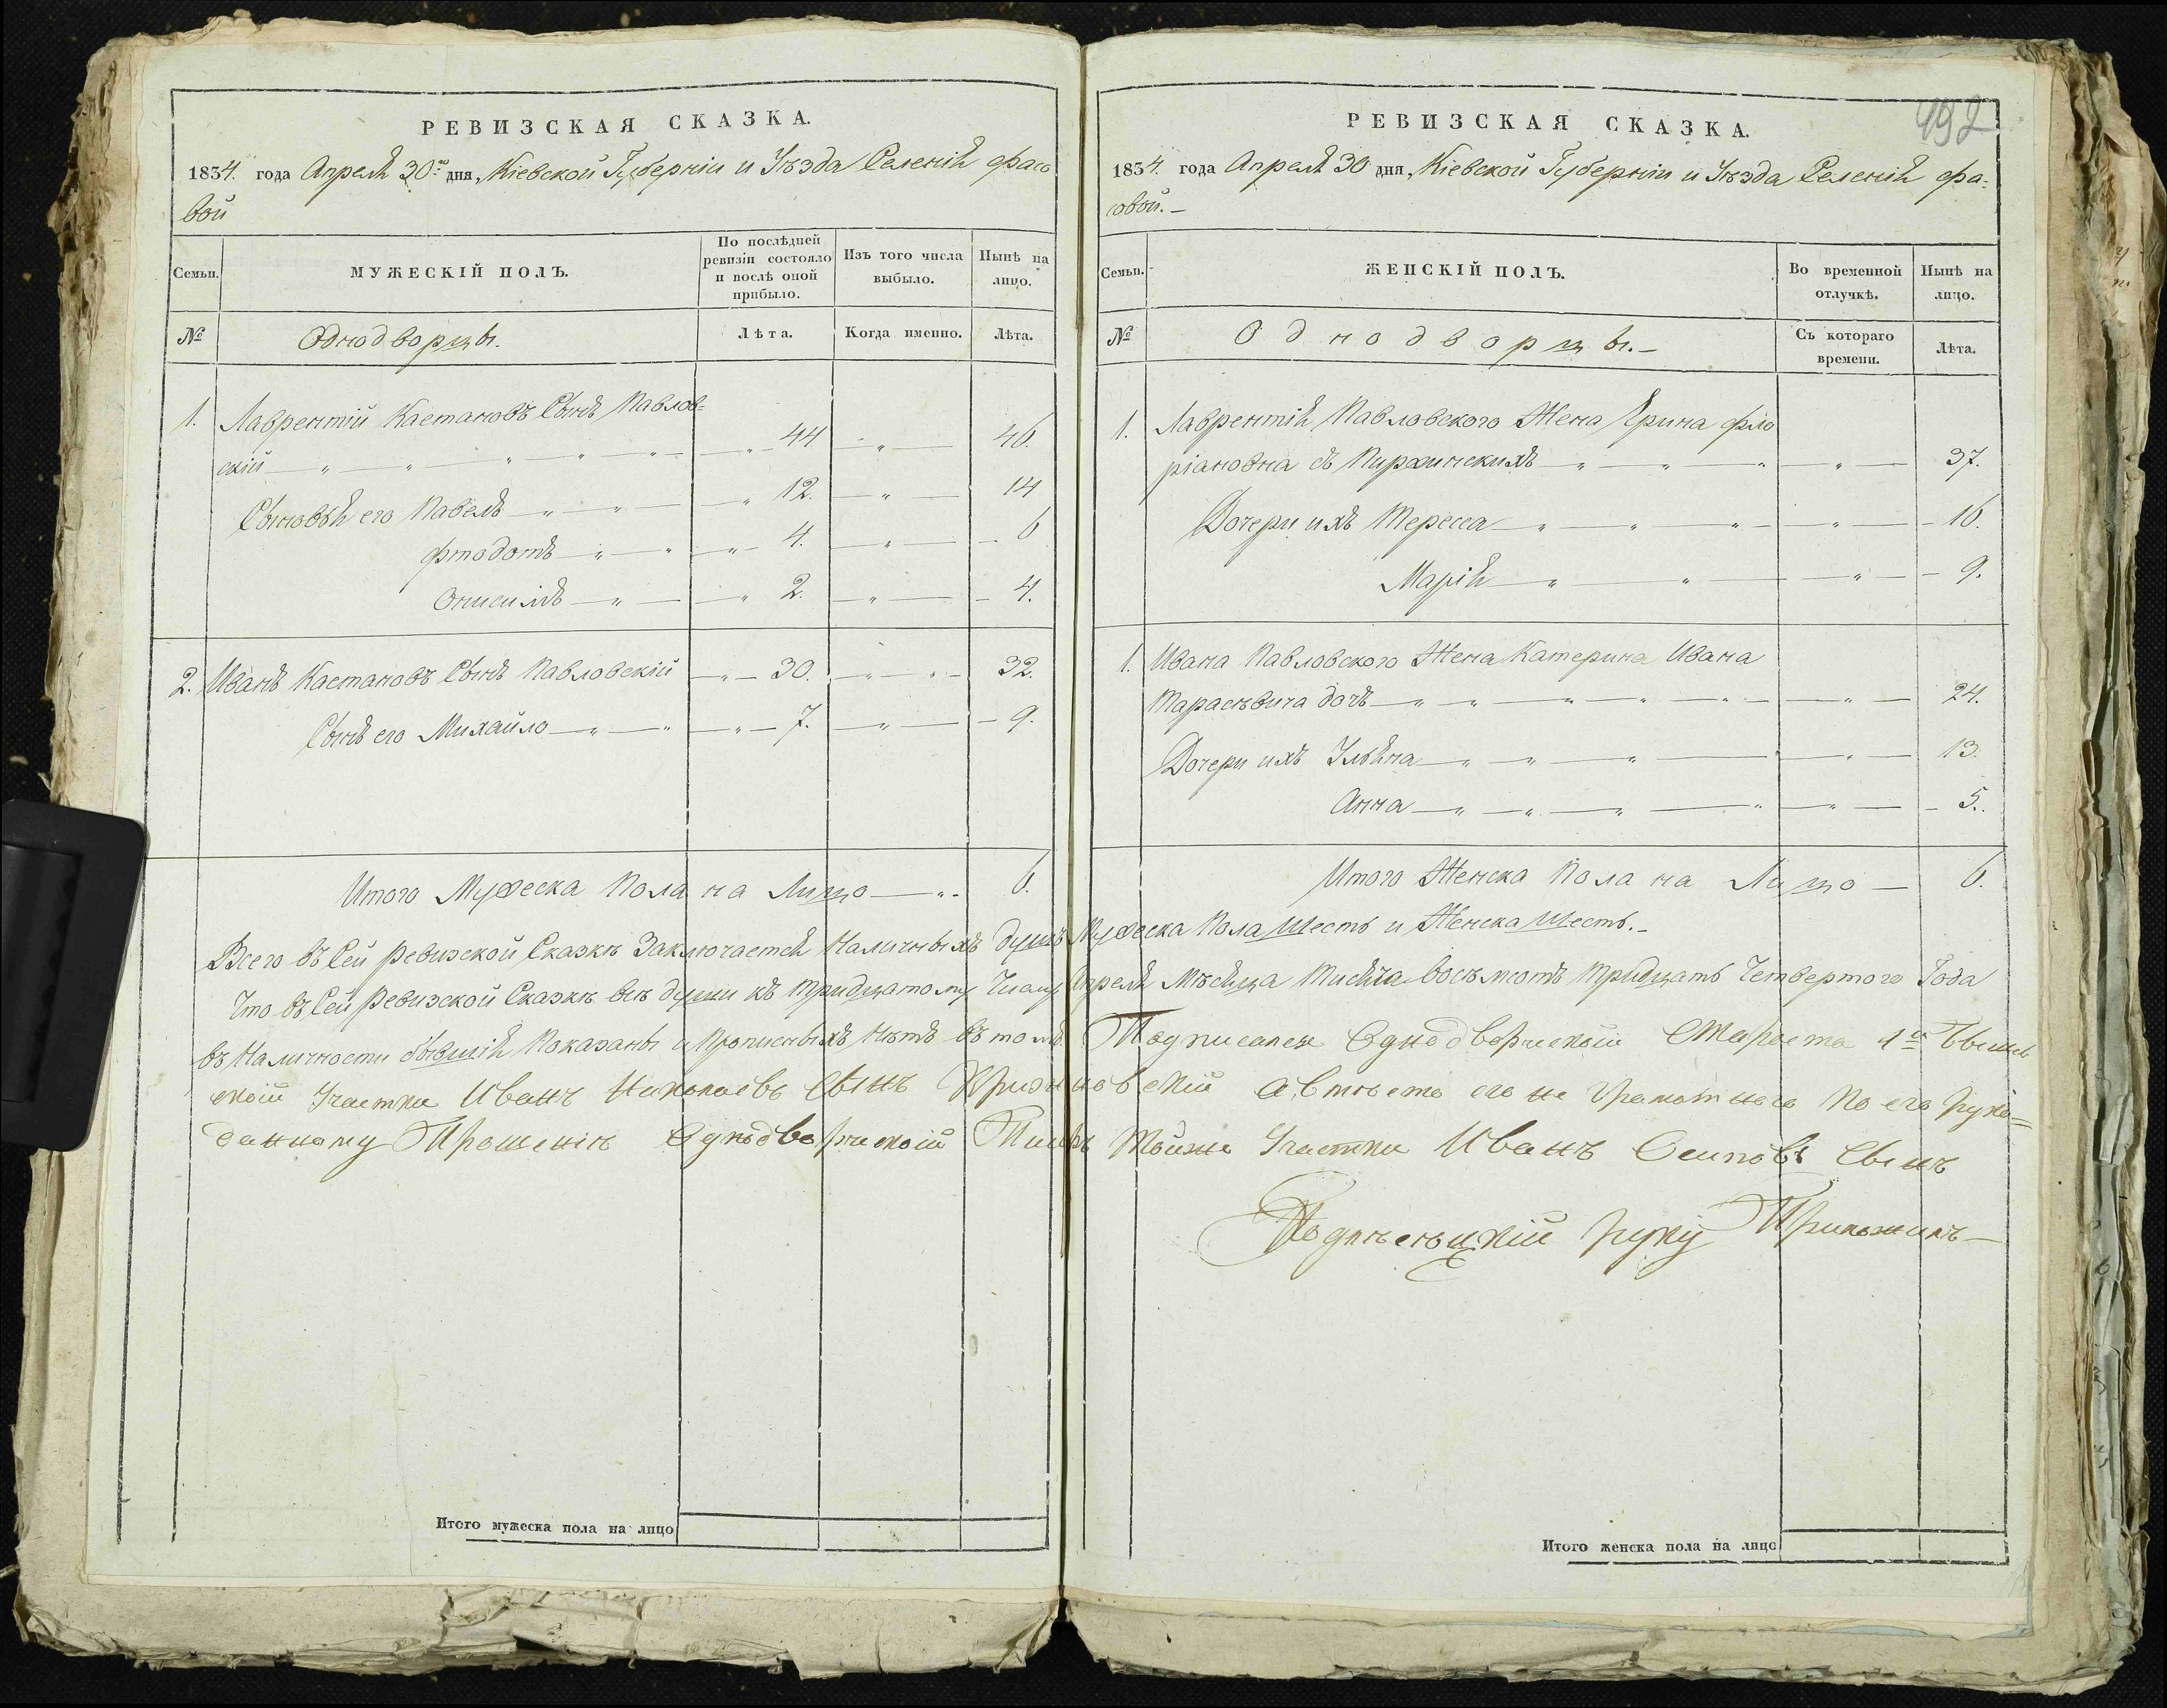 РЕВИЗСКАЯ СКАЗКА.
1834. года Апреля 30го дня, Кіевской Губерніи и Уѣзда Селенія Фасо
вой
Семьи.
МУЖЕСКІЙ ПОЛЪ.
По послѣдней
ревизіи состояло
и послѣ оной
прибыло.
Изъ того числа
выбыло.
Нынѣ на
лицо.
№
Однодворцы.
Лѣта.
Когда именно.
Лѣта.
1. Лаврентій Каетановъ Сынъ Павлов=
скій 44 46.
Сыновья его Павелъ 12. 14
Фтодотъ 4. 6
Онисимъ 2. 4.
2. Иванъ Каетановъ Сынъ Павловскій 30. 32.
Сынъ его Михайло 7. 9.
Итого Мужеска Пола на Лицо 6.
РЕВИЗСКАЯ СКАЗКА.
192
1834. года Апреля 30 дня, Кіевской Губерніи и Уѣзда Селенія Фа-
совой.-
Семьи.
ЖЕНСКІЙ ПОЛЪ.
Во временной
отлучкѣ.
Нынѣ на
лицо.
№
Однодворцы.-
Съ котораго
времени.
Лѣта.
1. Лаврентія Павловского Жена Ярина Фло
ріановна съ 37.
Дочери ихъ Тересса 16.
Марія 9.
1. Ивана Павловского Жена Катерина Ивана
Тарасѣвича дочь 24.
Дочери ихъ Ульяна 13.
Анна 5.
Итого Женска Пола на Лицо 6.
Всего въ Сей ревизской Сказкѣ Заключается Наличныхъ душъ Мужеска Пола Шесть и Женска Шесть.-
Что въ Сей Ревизской Сказкѣ всѣ души къ тридцатому Числу Апреля Мѣсяца Тисяча восѣмсотъ тридцать Четвертого Года
въ Наличности бывшія Показаны и Прописныхъ Нѣтъ въ томъ Подписался Однодворческій Староста 1го
Участка Иванъ Николаевъ Сынъ а вмѣсто его не грамотнаго По его руко=
данному Прошенію Однодворческій Тойже Участка Иванъ Осиповъ Сынъ
руку Приложилъ
Итого мужеска пола на лицо
Итого женска пола на лицо